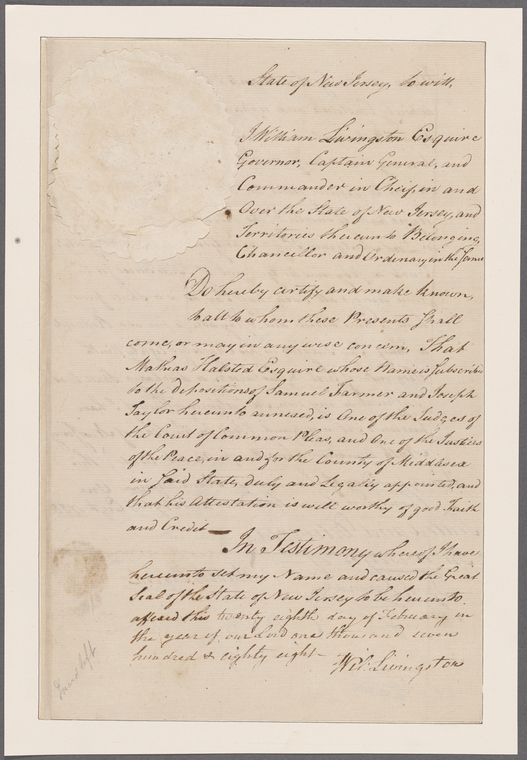 State of New Jersey, to witt,
I William Livingston Esquire
Governor, Captain General, and
Commander in Cheif in and
Over the State of New Jersey, and
Territories thereunto Belonging,
Chancellor and Ordenary in the Same
Do hereby certify and make known,
to all to whom these Presents shall
come, or may in any wise concern, That
Mathias Halsted Esquire whose Name is Subscribd
to the depositions of Samuel Farmer and Joseph
Taylor hereunto annexed, is One of the Judges of
the Court of Common Pleas, and One of the Justices
of the Peace, in and for the County of Middlesex
in said State, Duly and Legally appointed, and
that his Attestation is well worthy of good Faith
and Credit —
In Testimony whereof I have
hereunto set my Name and caused the Great
Seal of the State of New Jersey to be hereunto
affixed this twenty eighth day of February in
the year of our Lord one thousand seven
hundred & eighty eight –
Wil: Livingston